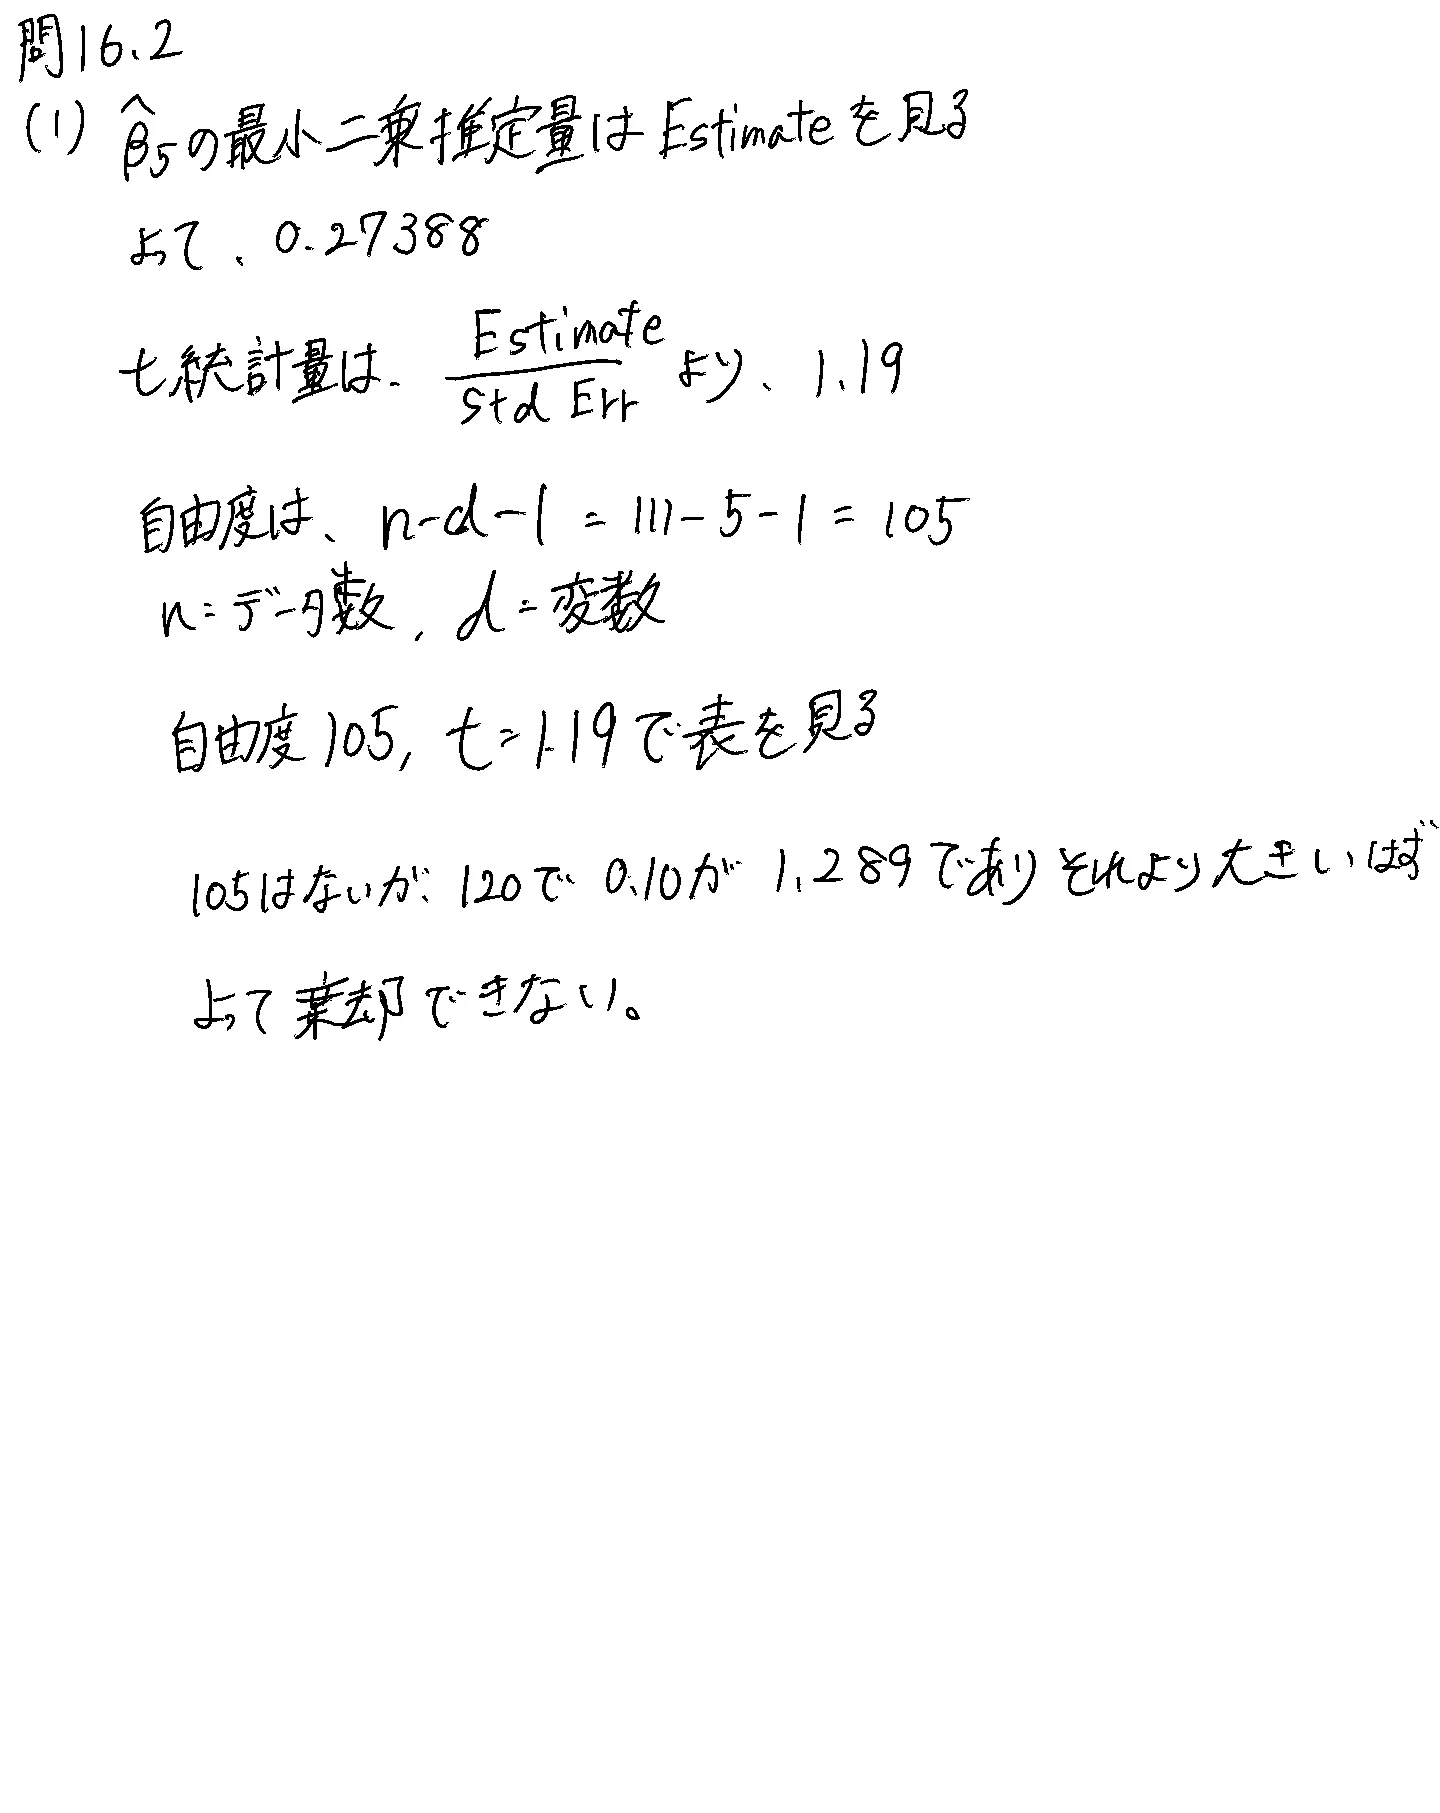 問16.2
(1) β̂5の最小二乗推定量はEstimateを見る
よって、0.27388
t統計量は、Estimate/Std Errより、1.19
自由度は、n-d-1 = 111-5-1 = 105
n=データ数, d=変数
自由度105, t=1.19で表を見る
105はないが、120で0.10が1.289でありそれより大きいはず
よって棄却できない。